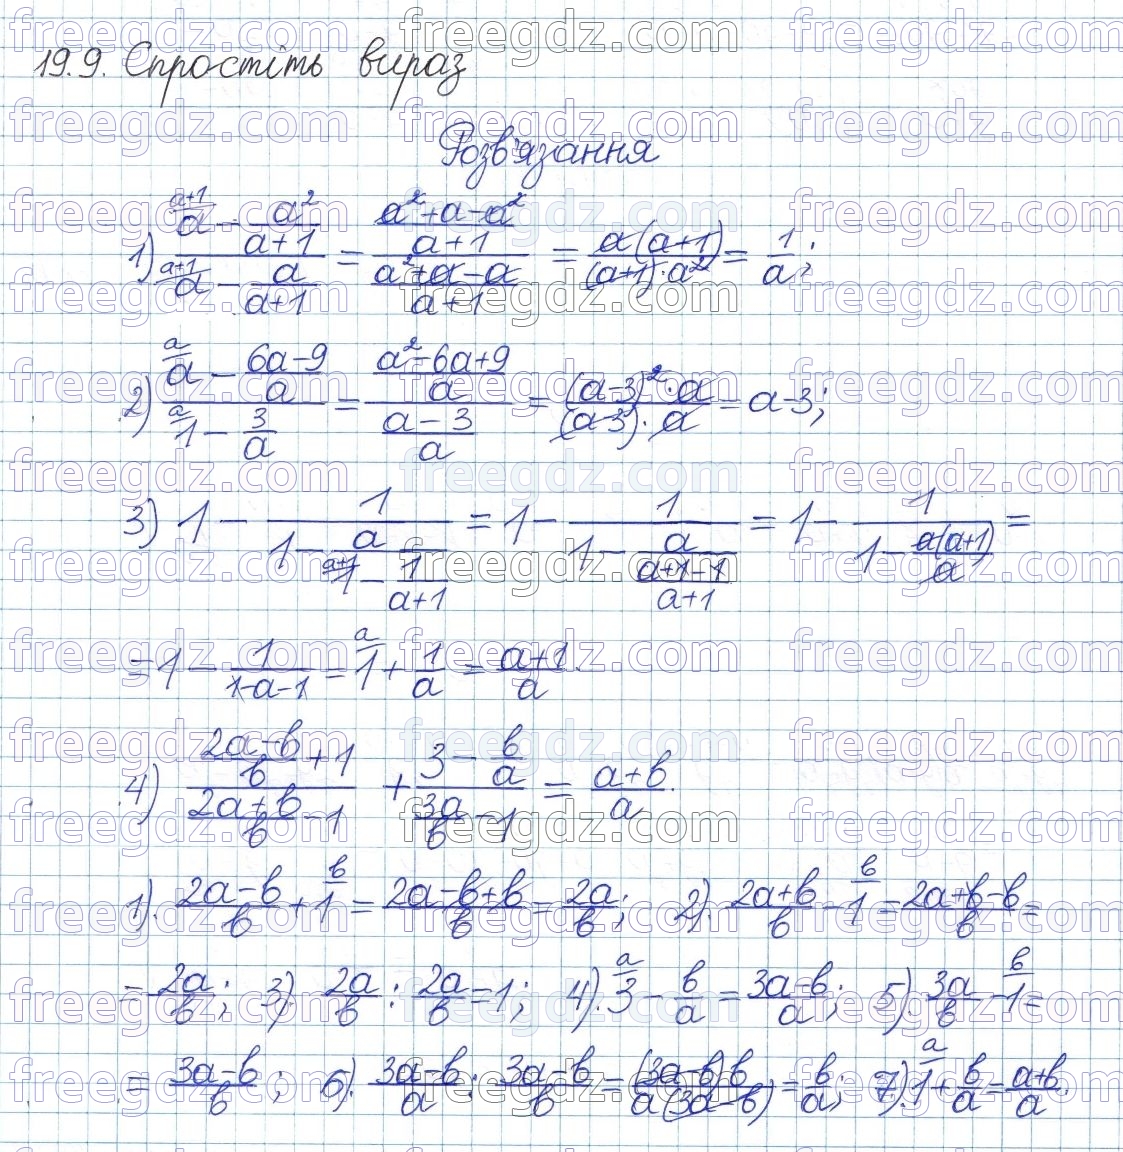 19.9. Спростіть вираз
Розв'язання
1) (a^{a+1} - a²/(a+1)) / (a^{a+1} - a/(a+1)) = ((a²+a-a²)/(a+1)) / ((a²+a-a)/(a+1)) = a(a+1)/((a+1)·a²) = 1/a;
2) (a^{a} - (6a-9)/a) / (1^{a} - 3/a) = ((a²-6a+9)/a) / ((a-3)/a) = ((a-3)²·a)/((a-3)·a) = a-3;
3) 1 - 1/(1 - a/(1^{a+1} - 1/(a+1))) = 1 - 1/(1 - a/((a+1-1)/(a+1))) = 1 - 1/(1 - a(a+1)/a) =
= 1 - 1/(1-a-1) = 1^{a} + 1/a = (a+1)/a.
4) ((2a-b)/b + 1) / ((2a+b)/b - 1) + (3 - b/a) / (3a/b - 1) = (a+b)/a.
1). (2a-b)/b + 1^{b} = (2a-b+b)/b = 2a/b; 2). (2a+b)/b - 1^{b} = (2a+b-b)/b =
= 2a/b; 3). 2a/b : 2a/b = 1; 4). 3^{a} - b/a = (3a-b)/a; 5). 3a/b - 1^{b} =
= (3a-b)/b; 6). (3a-b)/a : (3a-b)/b = (3a-b)b/(a(3a-b)) = b/a; 7). 1^{a} + b/a = (a+b)/a.
freegdz.com